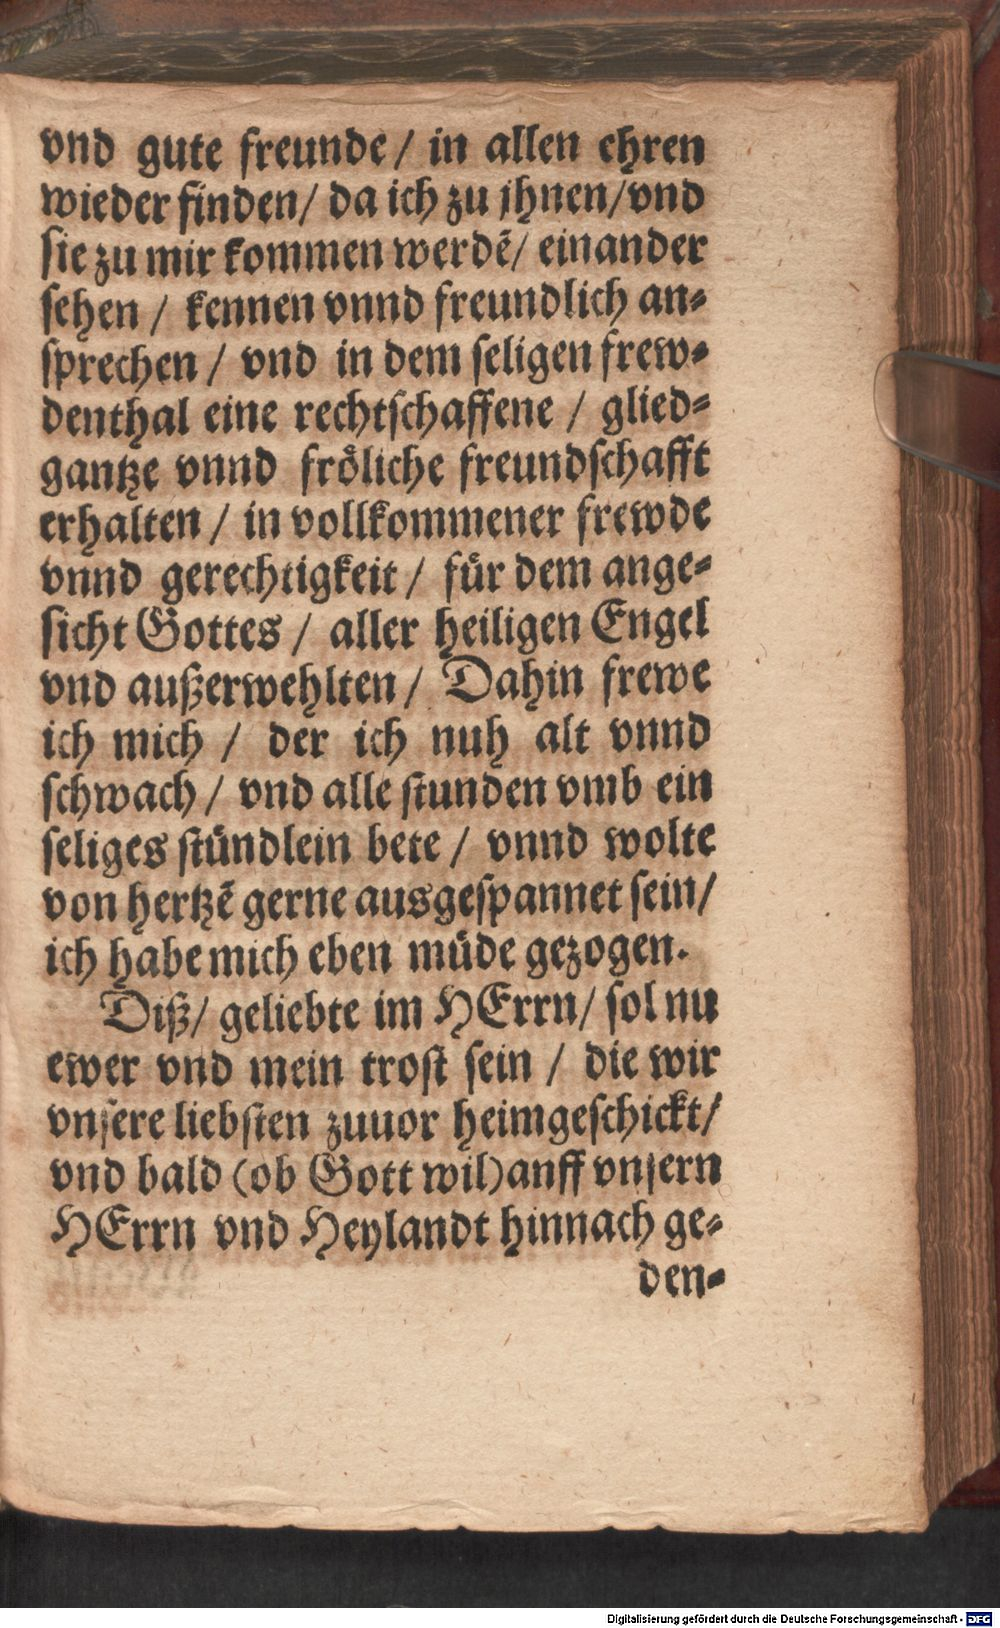 vnd gute freunde / in allen ehren
wieder finden / da ich zu jhnen / vnd
sie zu mir kommen werdẽ / einander
sehen / kennen vnnd freundlich an-
sprechen / vnd in dem seligen frew-
denthal eine rechtschaffene / glied-
gantze vnnd fröliche freundschafft
erhalten / in vollkommener frewde
vnnd gerechtigkeit / für dem ange-
sicht Gottes / aller heiligen Engel
vnd außerwehlten / Dahin frewe
ich mich / der ich nuh alt vnnd
schwach / vnd alle stunden vmb ein
seliges stündlein bete / vnnd wolte
von hertzẽ gerne ausgespannet sein /
ich habe mich eben müde gezogen.
Diß / geliebte im HErrn / sol nu
ewer vnd mein trost sein / die wir
vnsere liebsten zuuor heimgeschickt /
vnd bald (ob Gott wil) anff vnsern
HErrn vnd Heylandt hinnach ge-
den-
Digitalisierung gefördert durch die Deutsche Forschungsgemeinschaft - DFG